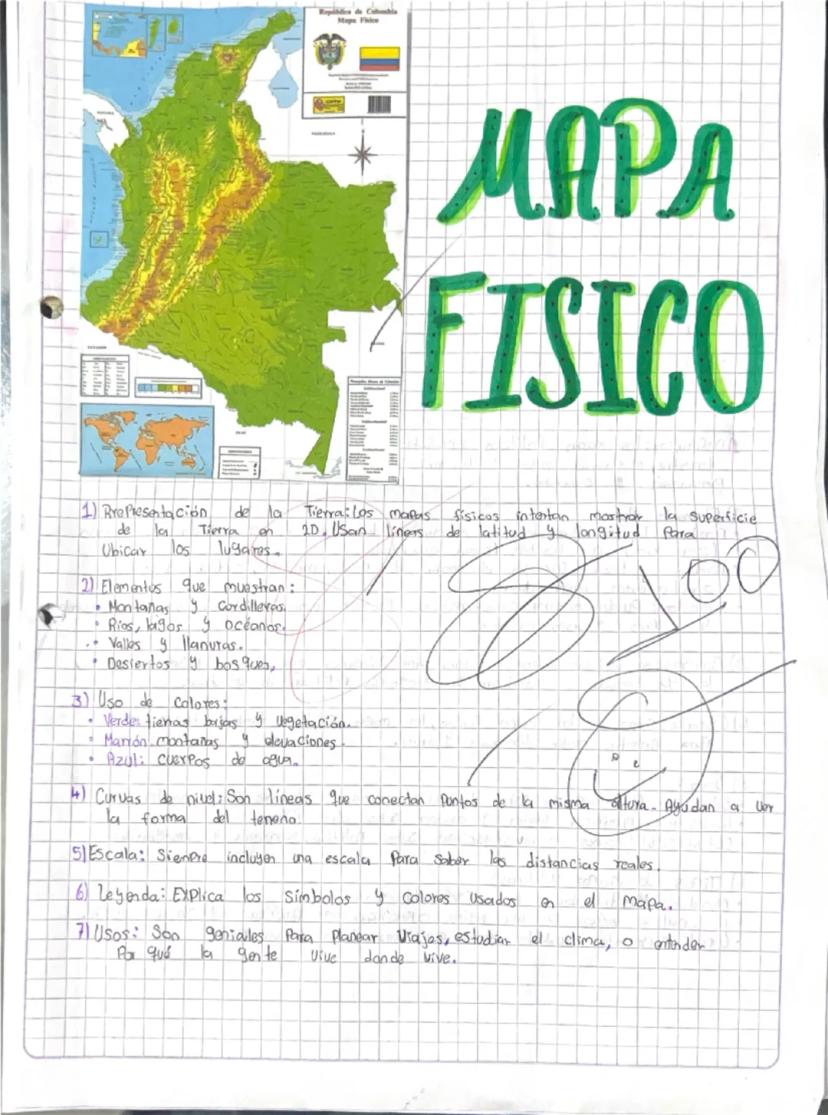 República de Colombia
Mapa Físico
MAPA
FISICO
1) Representación de la Tierra: Los mapas físicos intentan mostrar la superficie
de la Tierra en 2D. Usan líneas de latitud y longitud para
Ubicar los lugares.
2) Elementos que muestran:
• Montañas y Cordilleras.
• Ríos, lagos y océanos.
• Valles y llanuras.
• Desiertos y bosques,
100
3) Uso de Colores:
• Verde: tierras bajas y vegetación.
• Marrón: montañas y elevaciones.
• Azul: cuerpos de agua.
4) Curvas de nivel: Son líneas que conectan puntos de la misma altura. Ayudan a ver
la forma del terreno.
5) Escala: Siempre incluyen una escala para saber las distancias reales.
6) Leyenda: Explica los símbolos y colores usados en el mapa.
7) Usos: Son geniales para planear viajes, estudiar el clima, o entender
Por qué la gente vive donde vive.